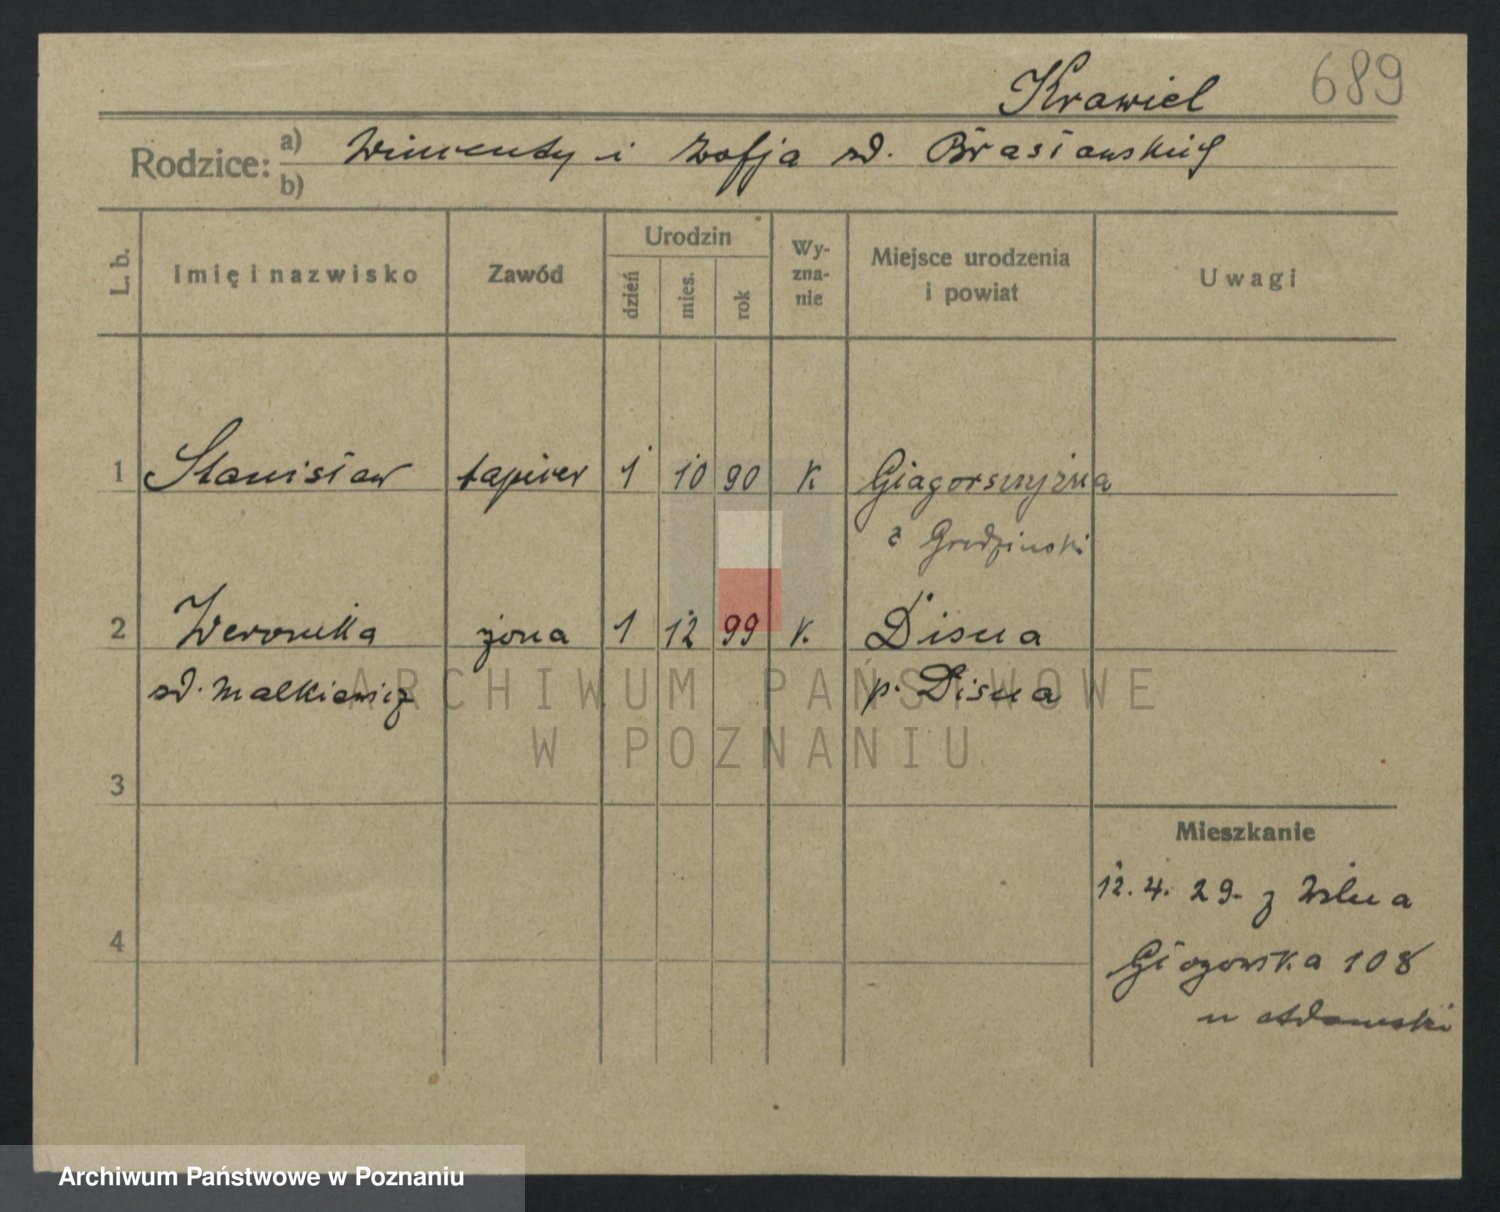 689
Krawiel
Rodzice: a) Wincenty i Zofja zd.
b)
L. b. Imię i nazwisko Zawód Urodzin dzień mies. rok Wyznanie Miejsce urodzenia i powiat Uwagi
1 Stanisław tapicer 1 10 90 K.
2 Weronika żona 1 12 99 K. Disna
zd. Malkiewicz p. Disna
ARCHIWUM PAŃSTWOWE
W POZNANIU
3
Mieszkanie
12. 4. 29. z Wilna
4
Głogowska 108
u Adamski
Archiwum Państwowe w Poznaniu